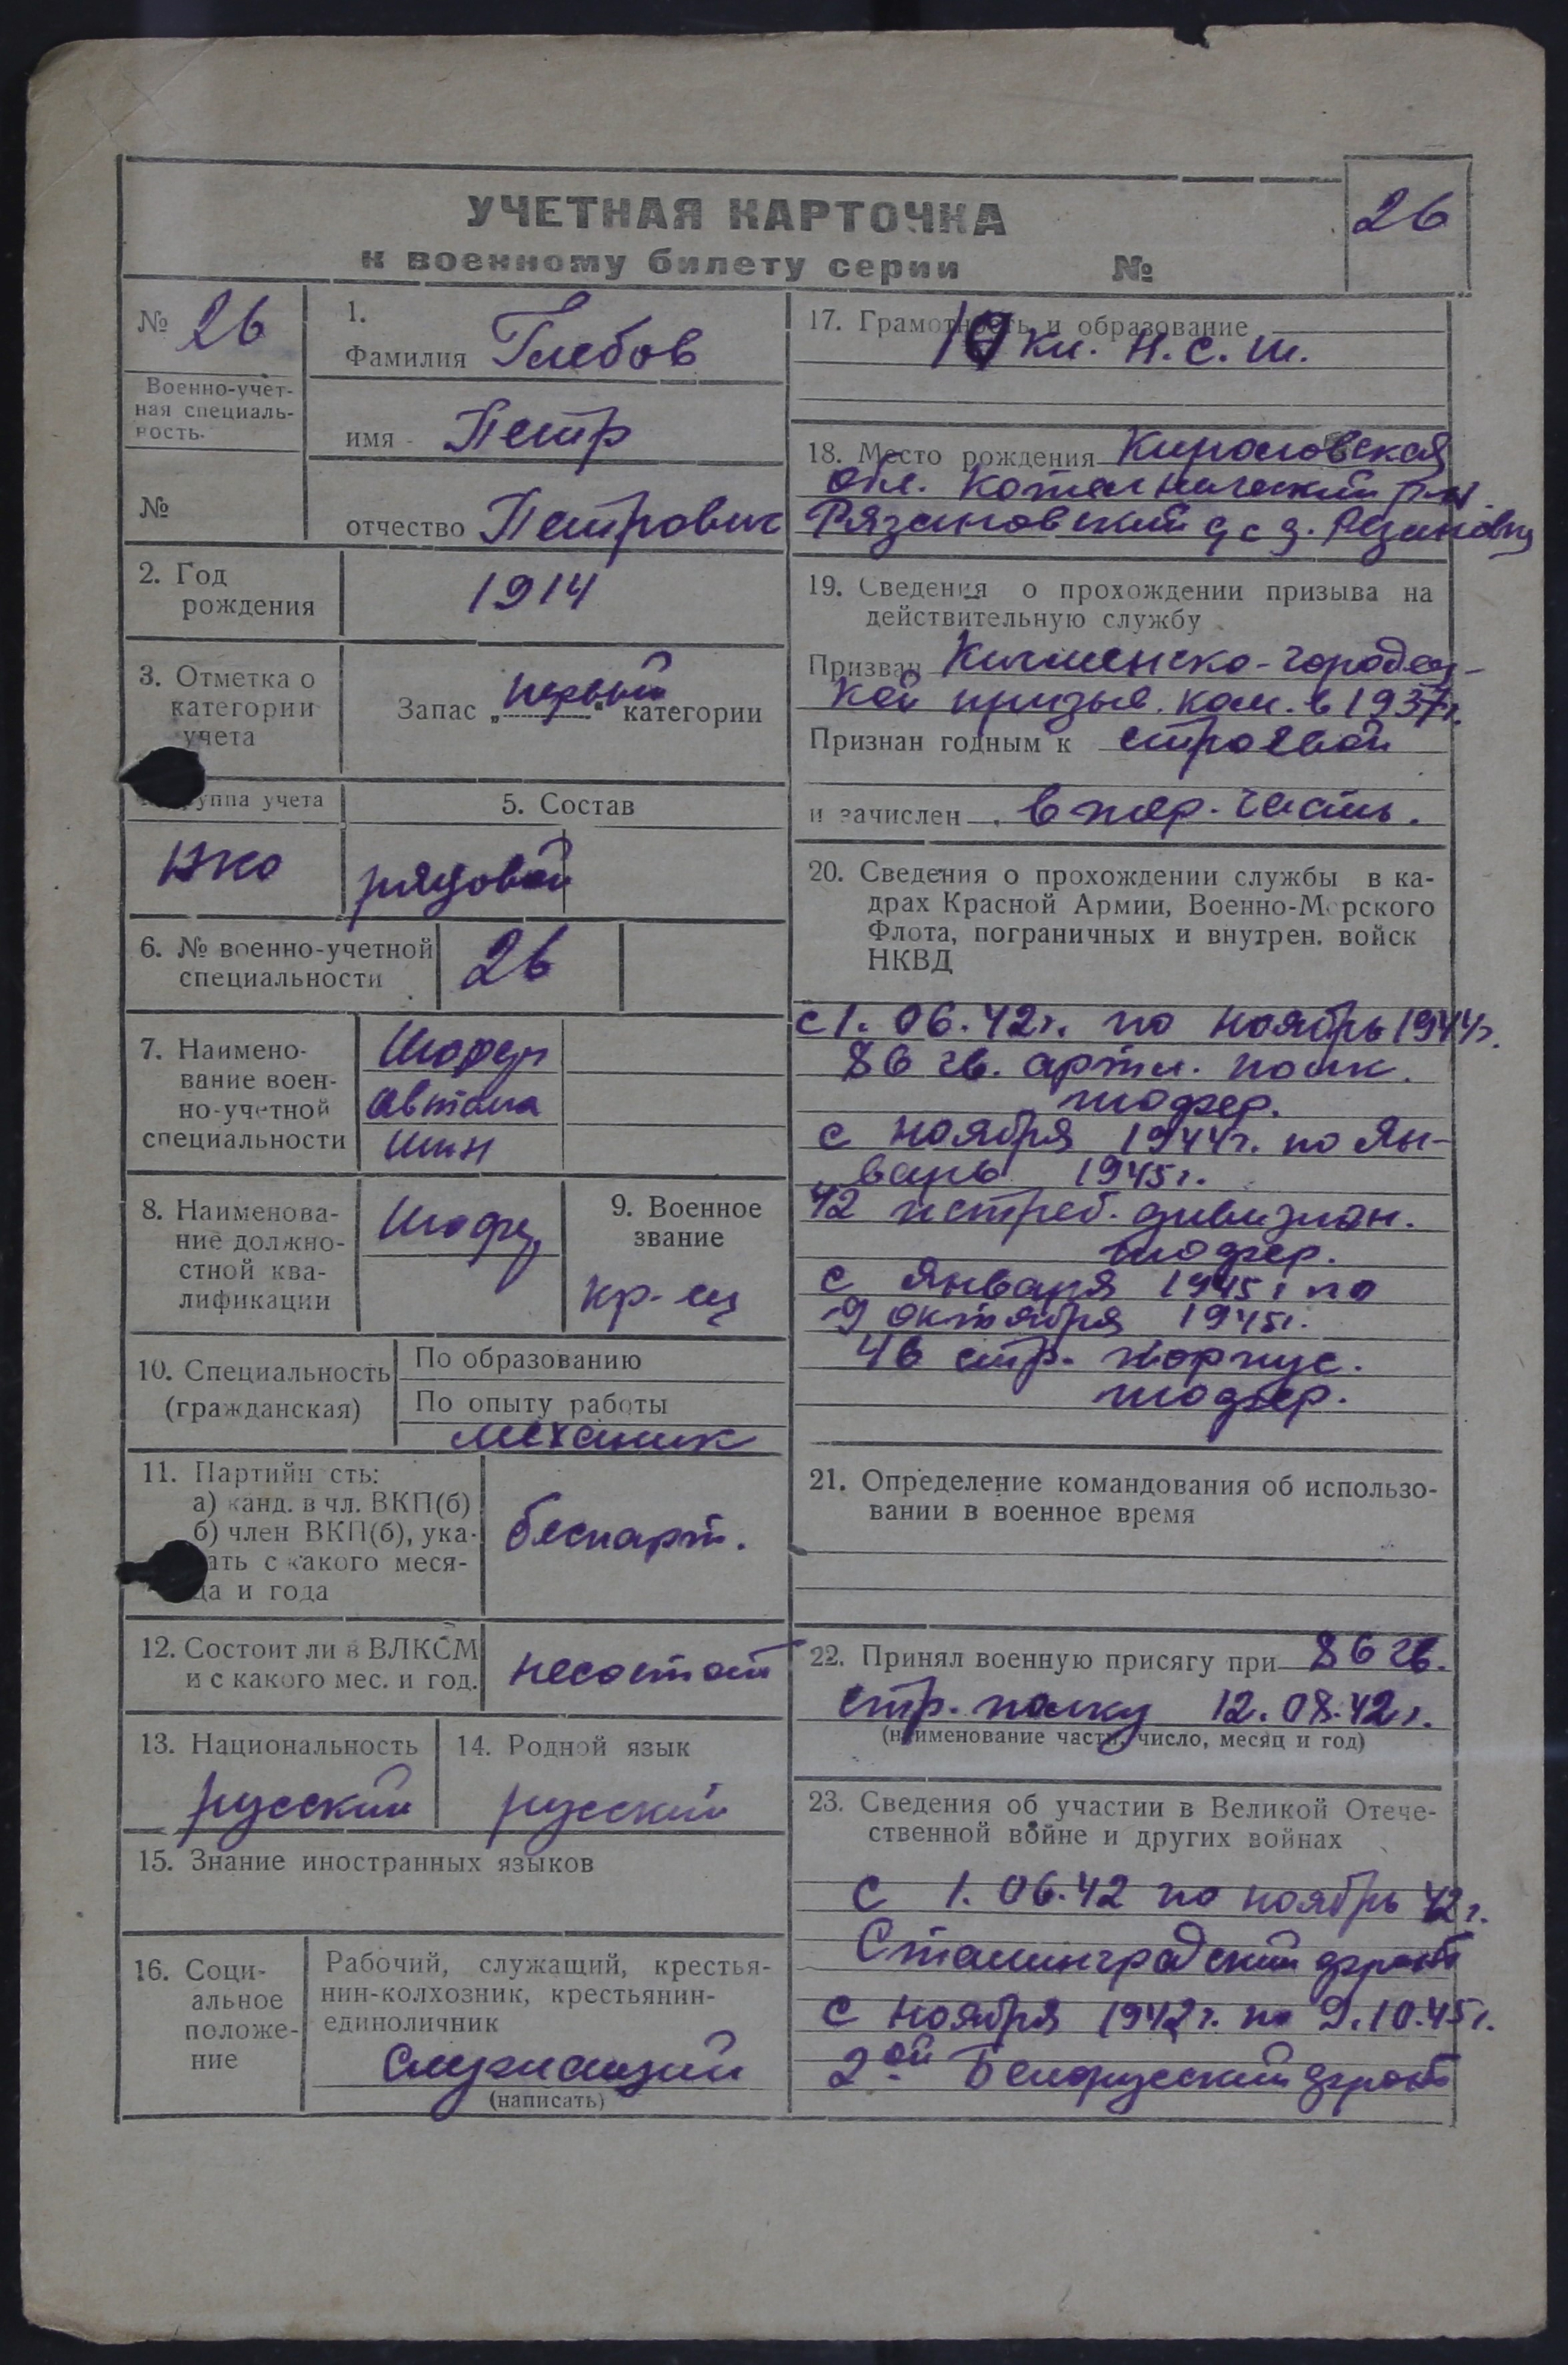 УЧЕТНАЯ КАРТОЧКА
к военному билету серии №
26
№ 26
Военно-учет-
ная специаль-
ность.
№
1.
Фамилия Глебов
имя - Петр
отчество Петрович
2. Год
рождения
1914
3. Отметка о
категории
учета
Запас „первой“ категории
группа учета
РККА
5. Состав
рядовой
6. № военно-учетной
специальности
26
7. Наимено-
вание воен-
но-учетной
специальности
Шофер
автома
шин
8. Наименова-
ние должно-
стной ква-
лификации
Шофер
9. Военное
звание
кр-ец
10. Специальность
(гражданская)
По образованию
По опыту работы
механик
11. Партийн сть:
а) канд. в чл. ВКП(б)
б) член ВКП(б), ука-
ать с какого меся-
ца и года
беспарт.
12. Состоит ли в ВЛКСМ
и с какого мес. и год.
несостоит
13. Национальность
русский
14. Родной язык
русский
15. Знание иностранных языков
16. Соци-
альное
положе-
ние
Рабочий, служащий, крестья-
нин-колхозник, крестьянин-
единоличник
Служащий
(написать)
17. Грамотность и образование
10 кл. Н.С.Ш.
18. Место рождения Кировская
обл. Котельнический р-н.
Рязановский с/с д. Рязановцы
19. Сведения о прохождении призыва на
действительную службу
Призван Кичменско-Городец-
кой призыв. ком. в 1937г.
Признан годным к строевой
и зачислен в тер. часть.
20. Сведения о прохождении службы в ка-
драх Красной Армии, Военно-Морского
Флота, пограничных и внутрен. войск
НКВД
с 1.06.42г. по ноябрь 1944г.
86 гв. артил. полк.
шофер.
с ноября 1944г. по Ян-
варь 1945г.
42 истреб. дивизион.
шофер.
с января 1945г по
9 октября 1945г.
46 стр. корпус.
шофер.
21. Определение командования об использо-
вании в военное время
22. Принял военную присягу при 86 гв.
стр. полку 12.08.42г.
(наименование части, число, месяц и год)
23. Сведения об участии в Великой Отече-
ственной войне и других войнах
с 1.06.42 по ноябрь 42г.
Сталинградский фронт
с ноября 1942г. по 9.10.45г.
2ой Белорусский фронт